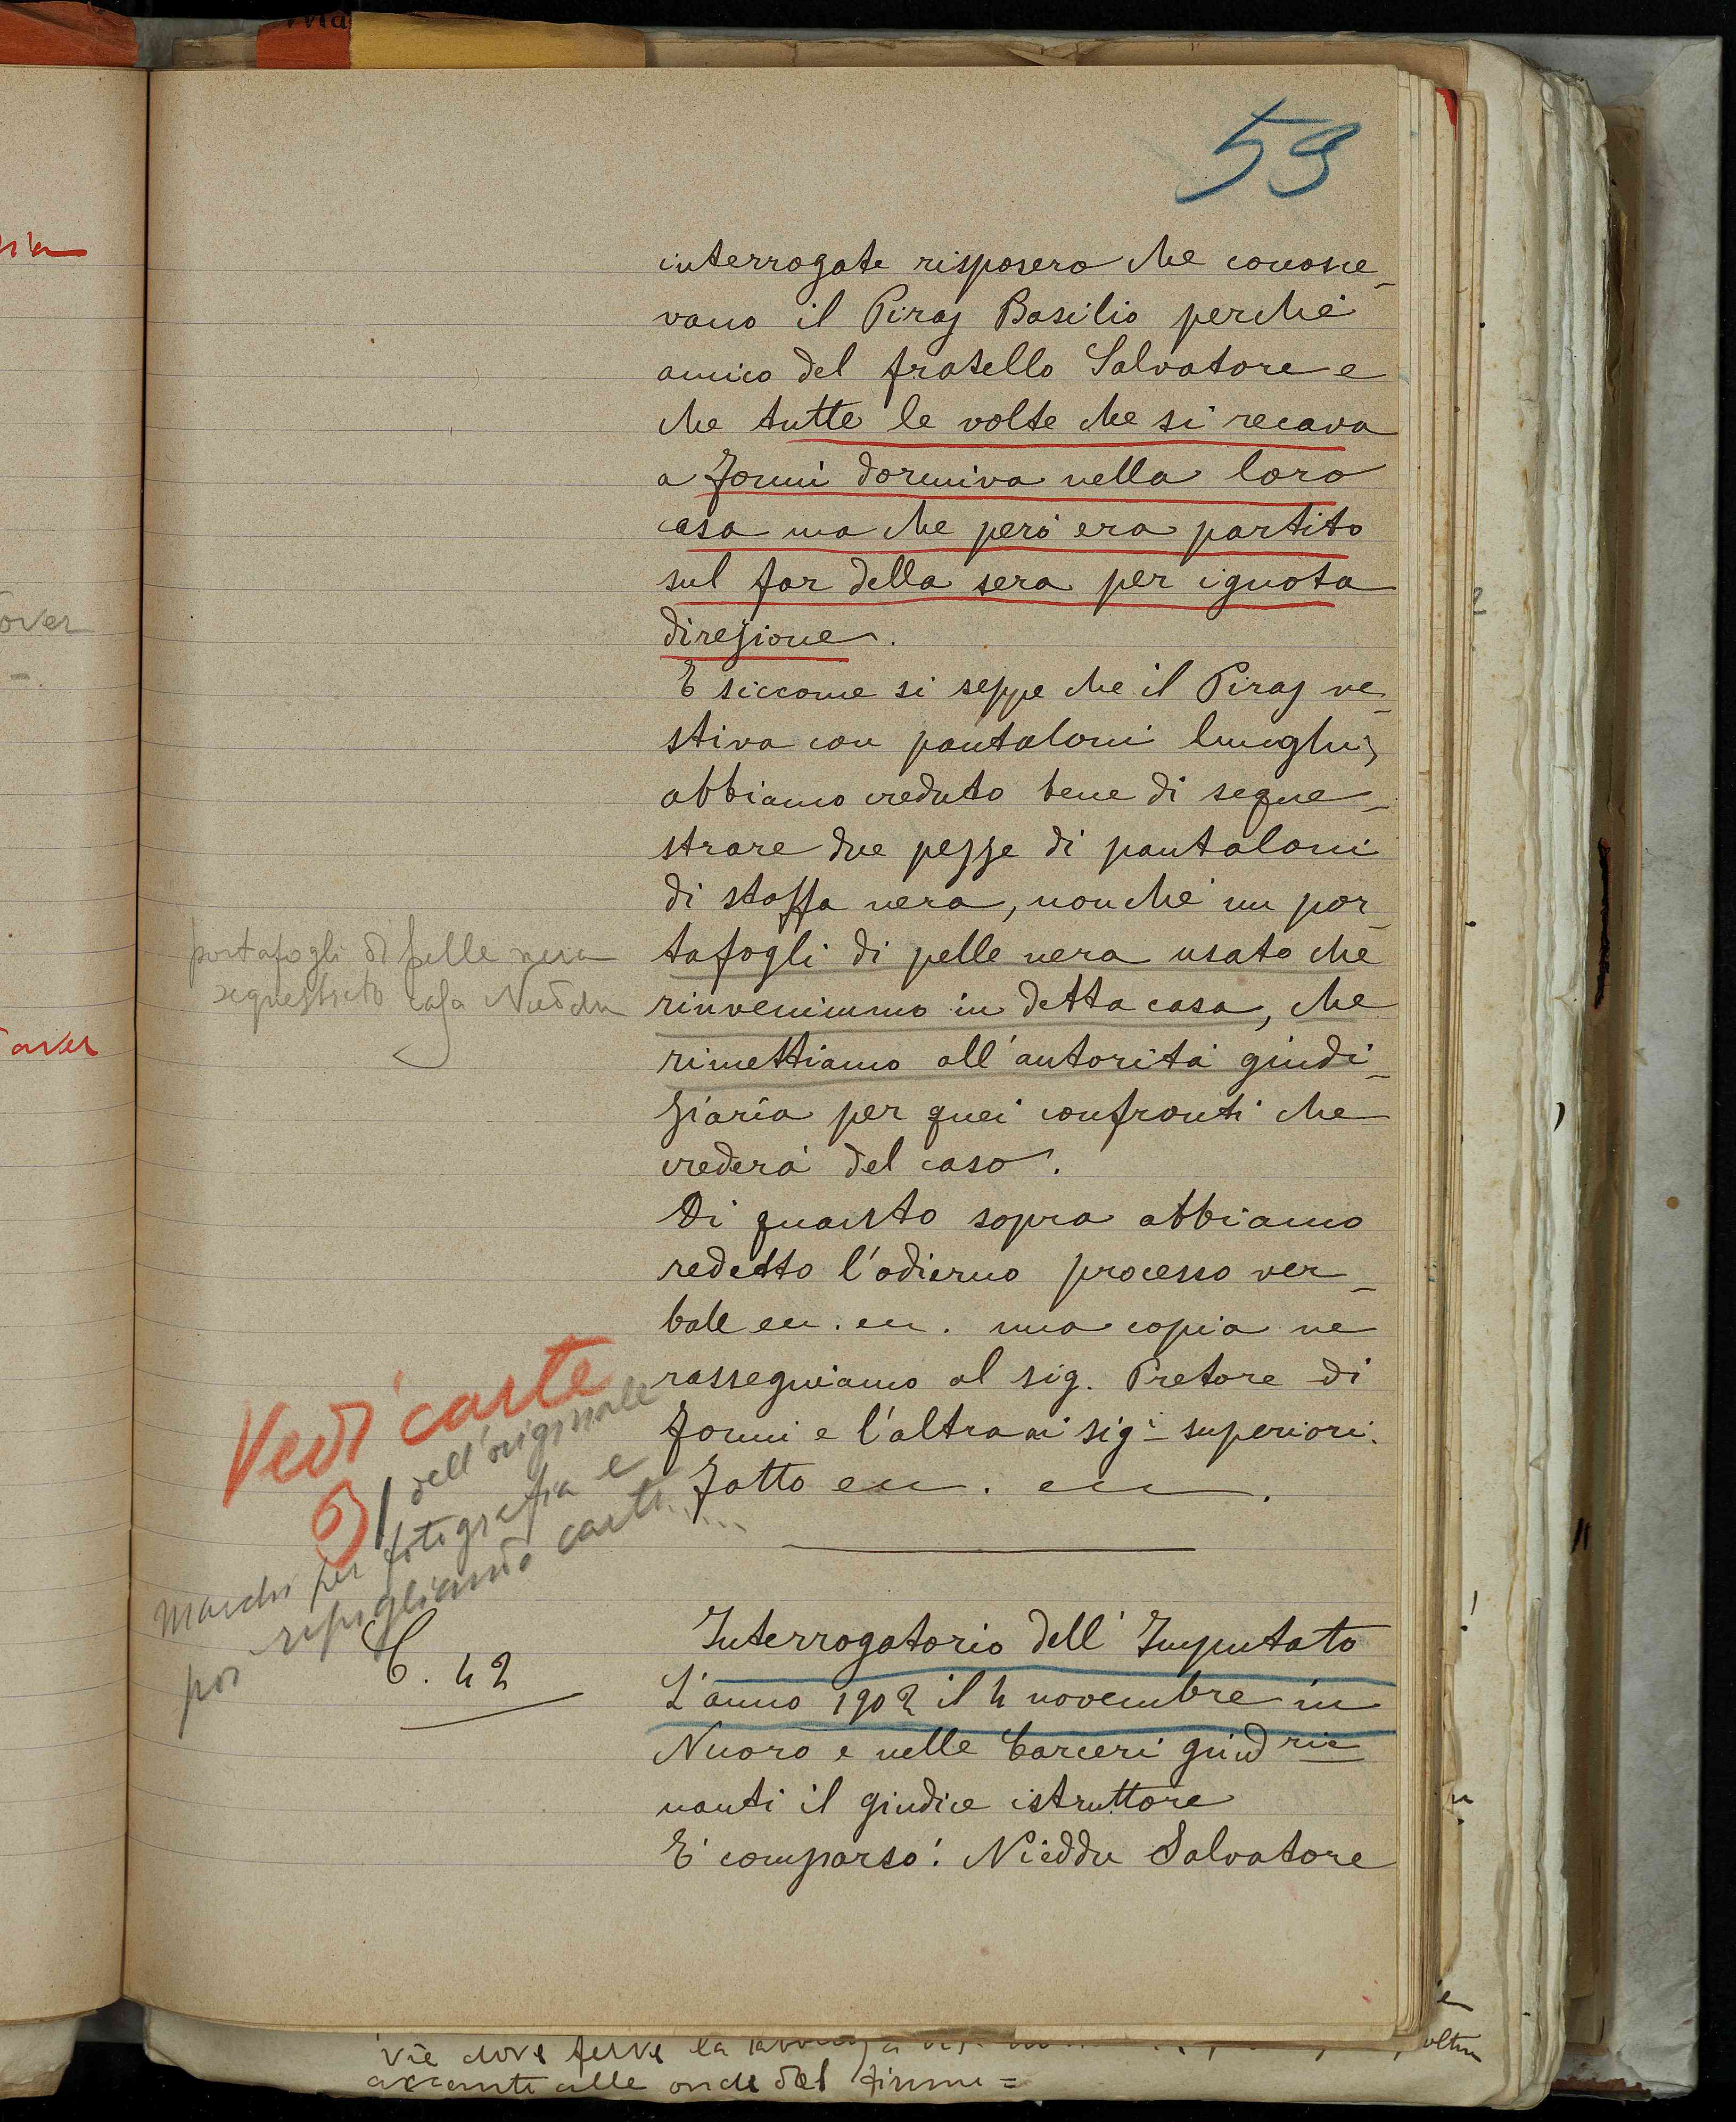 59
interrogate risposero che conosce-
vano il Piras Basilio perchè
amico del fratello Salvatore e
che tutte le volte che si recava
a Fonni dormiva nella loro
casa ma che però era partito
sul far della sera per ignota
direzione.
E siccome si seppe che il Piras ve-
stiva con pantaloni lunghi,
abbiamo creduto bene di seque-
strare due pezze di pantaloni
di stoffa nera, nonchè un por-
tafogli di pelle nera usato che
rinvenimmo in detta casa, che
rimettiamo all'autorità giudi-
ziaria per quei confronti che
crederà del caso.
Di quanto sopra abbiamo
redatto l'odierno processo ver-
bale ecc. ecc. una copia ne
rassegniamo al sig. Pretore di
Fonni e l'altra ai sigi superiori.
Fatto ecc. ecc.
portafogli di pelle nera
sequestrato casa Nieddu
Vedi carte
dell'originale
per fotografia e
poi ripigliando carta
C. 42
Interrogatorio dell'Imputato
L'anno 1902 il 4 novembre in
Nuoro e nelle Carceri giudrie
nanti il giudice istruttore
E' comparso: Nieddu Salvatore
over
vie dove ferve la
alle onde del fiume =
oltre